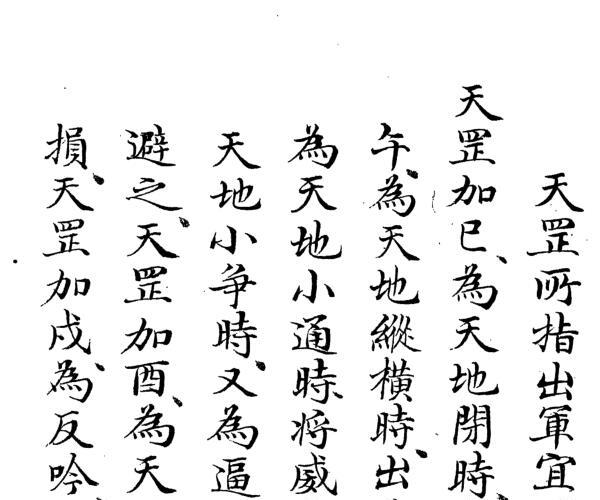 天罡所指出軍宜
天罡加巳、為天地閉時、
午、為天地縱橫時、出
為天地小通時、将威
天地小争時、又為逼
避之、天罡加酉、為天
損、天罡加戍、為反吟、